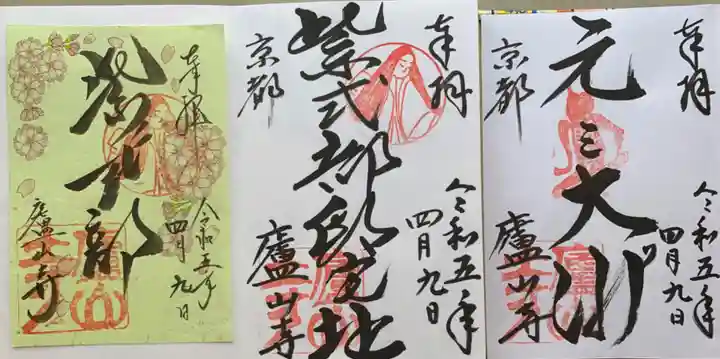 奉拝
令和五年
四月九日
紫式部
廬山寺
奉拝
令和五年
四月九日
紫式部邸宅址
京都
廬山寺
奉拝
令和五年
四月九日
元三大師
京都
廬山寺